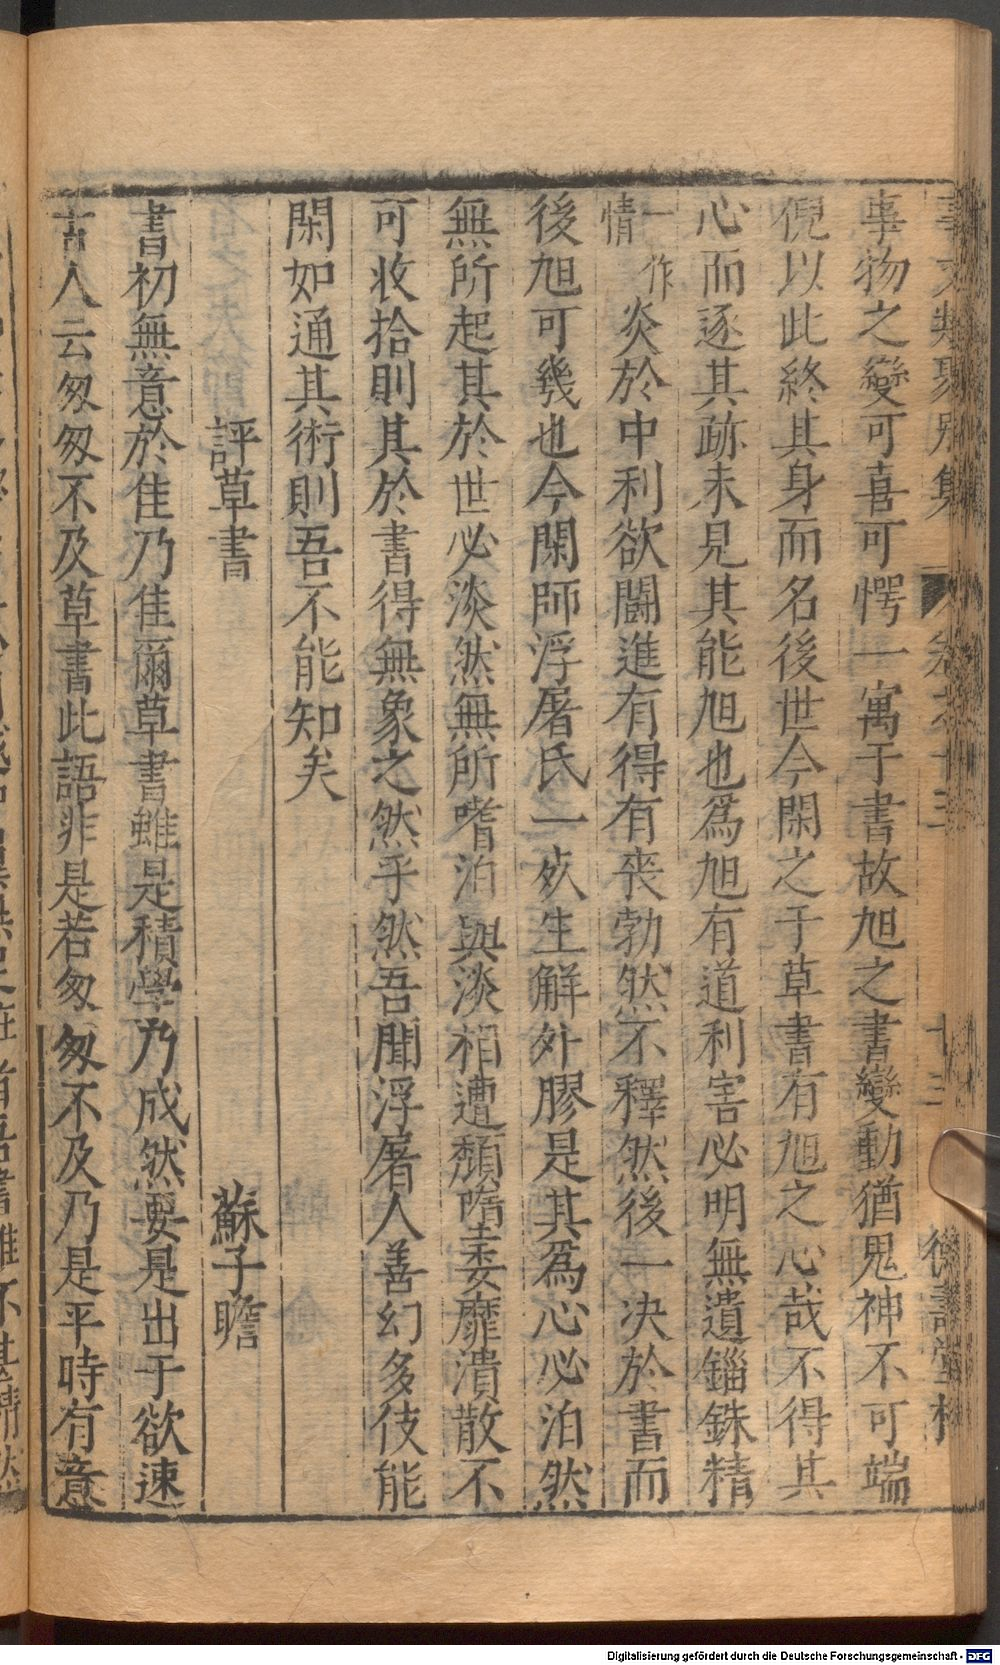 事文類聚別集 卷之十三 十三 德壽堂梓
事物之變可喜可愕一寓于書故旭之書變動猶鬼神不可端
倪以此終其身而名後世今閑之于草書有旭之心哉不得其
心而逐其跡未見其能旭也爲旭有道利害必明無遺錙銖精
一作情炎於中利欲鬪進有得有喪勃然不釋然後一决於書而
後旭可幾也今閑師浮屠氏一死生解外膠是其爲心必泊然
無所起其於世必淡然無所嗜泊與淡相遭頽墮委靡潰散不
可收拾則其於書得無象之然乎然吾聞浮屠人善幻多伎能
閑如通其術則吾不能知矣
評草書 蘇子瞻
書初無意於佳乃佳爾草書雖是積學乃成然要是出于欲速
古人云匆匆不及草書此語非是若匆匆不及乃是平時有意
Digitalisierung gefördert durch die Deutsche Forschungsgemeinschaft - DFG